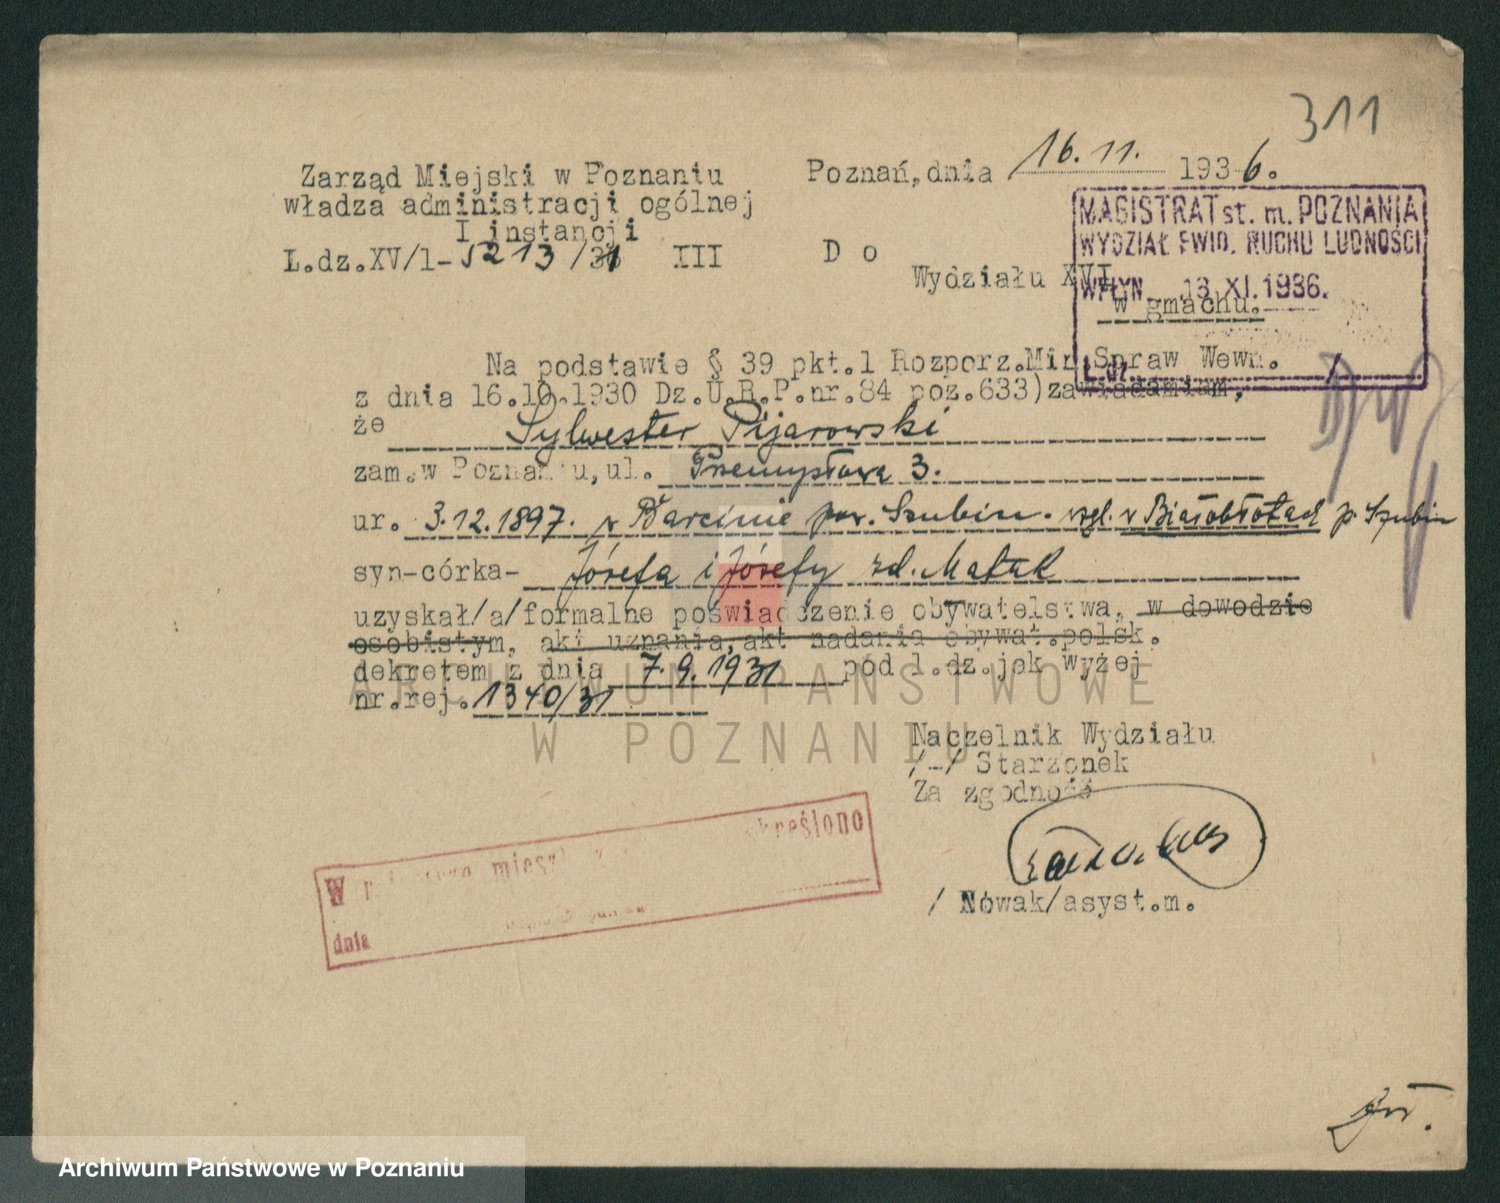 311
Zarząd Miejski w Poznaniu
władza administracji ogólnej
I instancji
L.dz.XV/1-5213/31 III
Poznań,dnia 16.11. 1936.
MAGISTRAT st. m. POZNANIA
WYDZIAŁ EWID. RUCHU LUDNOŚCI
WPŁYN. 18. XI. 1936.
L. dz.
D o
Wydziału XVI
w gmachu.
Na podstawie § 39 pkt.1 Rozporz.Min.Spraw Wewn.
z dnia 16.10.1930 Dz.U.R.P.nr.84 poz.633)zawiadamiam,
że Sylwester Pijarowski
zam.w Poznaniu,ul. Przemysłowa 3.
ur. 3.12.1897. w Barcinie pow. Szubin. wzgl. w Białobłotach p. Szubin
syn-córka- Józefa i Józefy zd. Matak
uzyskał/a/formalne poświadczenie obywatelstwa, w dowodzie
osobistym, akt uznania,akt nadania obywat.polsk.
dekretem z dnia 7.9.1931 pod l.dz.jak wyżej
nr.rej. 1340/31
Naczelnik Wydziału
/-/ Starzonek
Za zgodność
/ Nowak/asyst.m.
W określono
dnia
ARCHIWUM PAŃSTWOWE
W POZNANIU
Archiwum Państwowe w Poznaniu